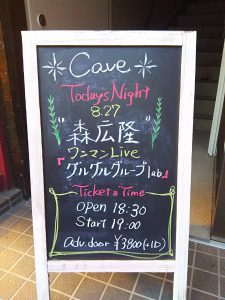 Cave
Todays Night
8.27
"森広隆"
ワンマンLive
『グルグルグルーブlab』
Ticket & Time
OPen 18:30
Start 19:00
adv.door ¥3800(+1D)